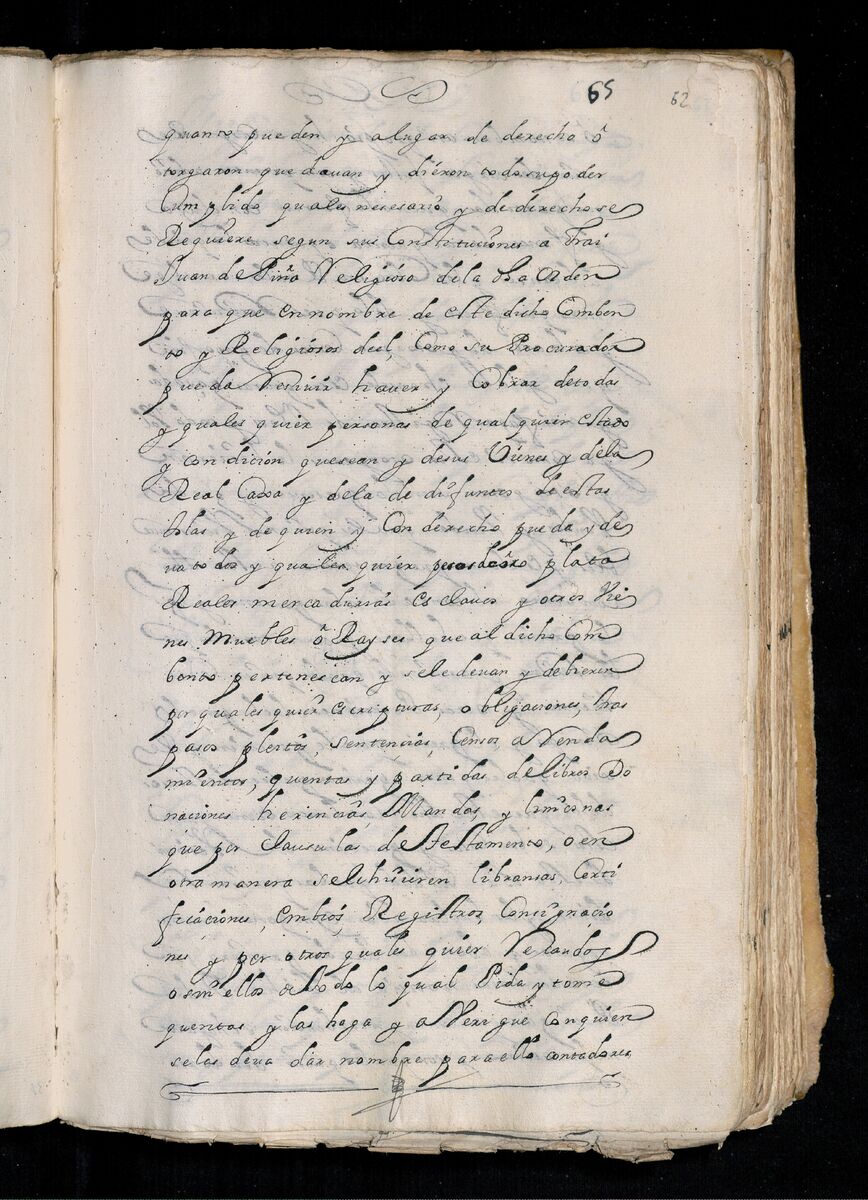 65 62
quanto pueden y a lugar de derecho ô
torgaron que dauan y diéron todo su poder
Cumplido qual es nesesario y de derecho se
Requiére segun sus Constituciónes a Frai
Juan de Piña Religioso de la dha Orden
para que en nombre de este dicho Comben
to y Religiosos deel, Como su Procurador
pueda Resiuir hauer y Cobrar de todas
y quales quier personas de qual quier estado
y condición que sean y de sus Viénes y de la
Real Caxa y de la de difuntos de estas
Islas y de quien y Con derecho pueda y de
ua todos y quales quiér pesos de oro plata
Reales mercadurias esclauos y otros vié
nes Muebles ô Rayses que al dicho Com
bento pertenescan y se le deuan y debieren
por quales quiér escripturas, obligaciones, tras
pasos pleitos, sentencias, Censos, aRenda
miéntos, quentas y partidas de libros Do
naciones herencias, Mandas, y limosnas
que por clausulas de testamento, o en
otra manera se le huuieren libransas, Certi
ficaciónes, embios, Registros, Consignacio
nes y por otros quales quier Recaudos
o sin ellos de todo lo qual Pida y tome
quentas y las haga y aVerigue con quien
se las deua dar nombre para ello contadores